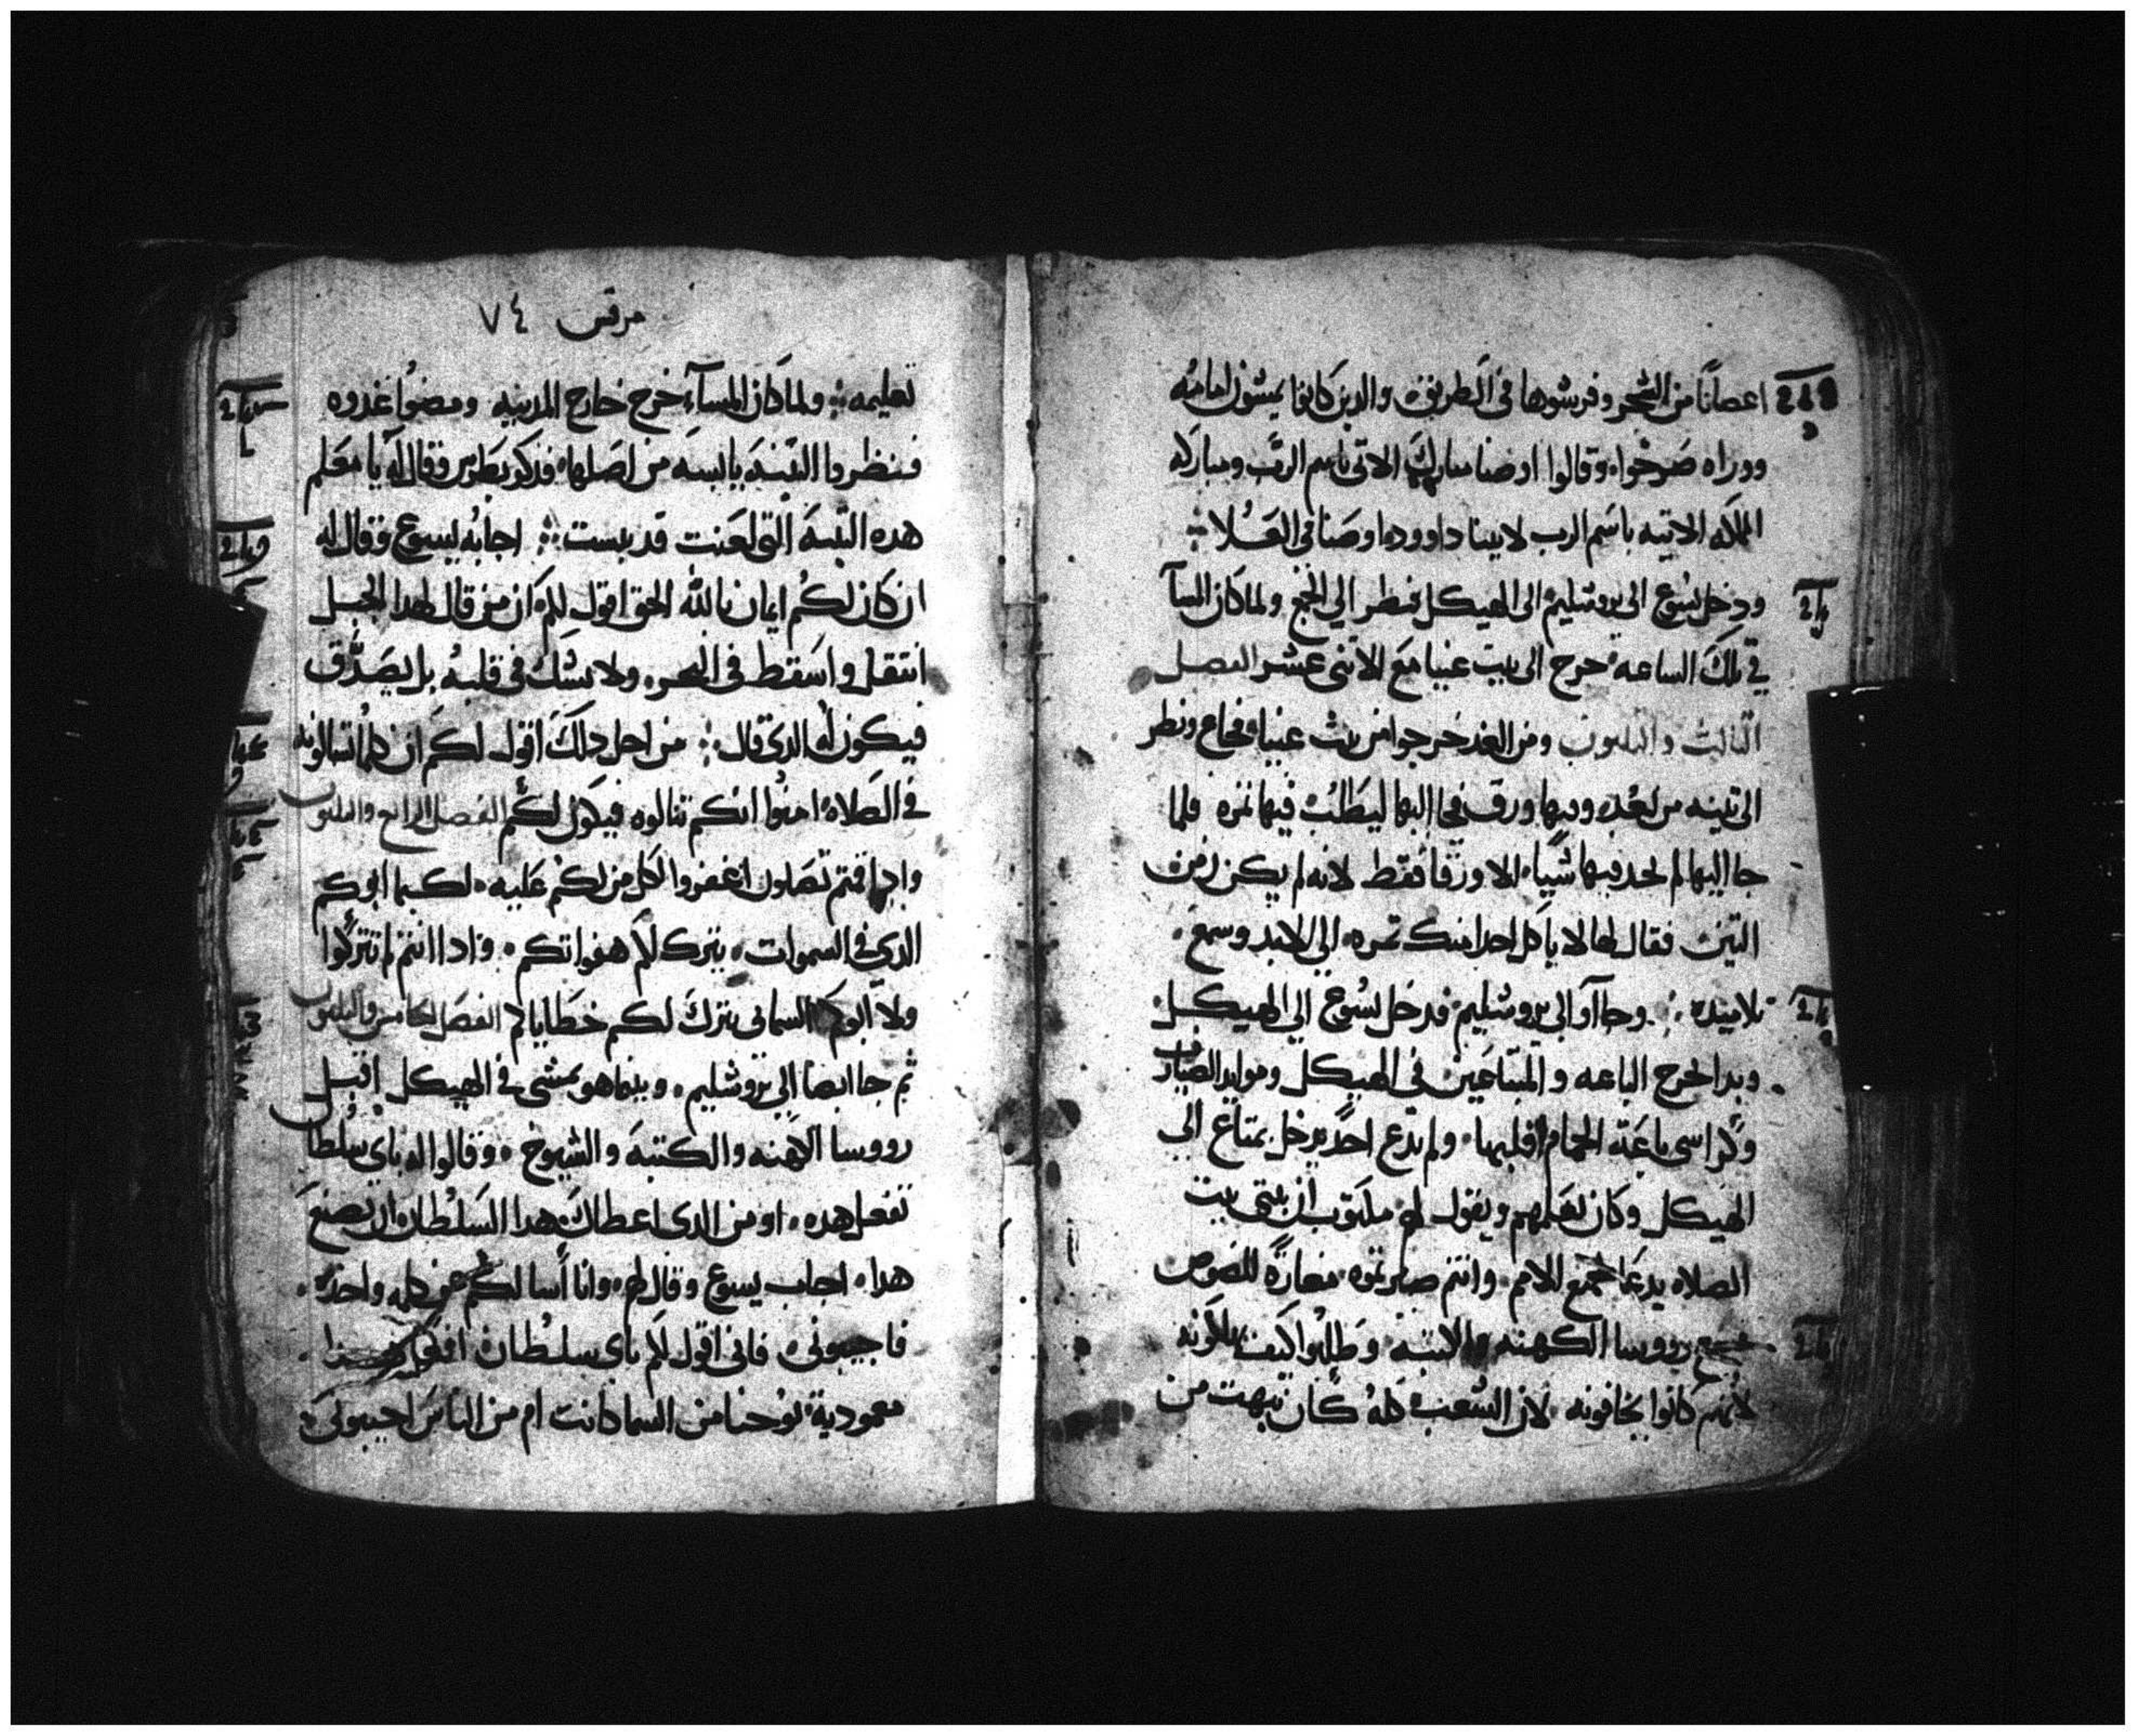 اغصانًا من الشجر وفرشوها في الطريق والدين كانوا يمشون امامه
ووراه صرخوا وقالوا اوصنا مبارك الاتي باسم الرب ومباركه
المملكه الاتيه باسم الرب لابينا داوود اوصنا في العلا
ودخل يسوع الى يروشليم الى الهيكل فنظر الي الجمع ولما كان المسا
في تلك الساعه خرج الى بيت عنيا مع الاثنى عشر الفصل
الثالث والثلثون ومن الغد خرجوا من بيت عنيا فجاع ونظر
الى تينه من بعد وبها ورق فجا اليها ليطلب فيها ثمره فلما
جا اليها لم يجد فيها شيا الا ورقا فقط لانه لم يكن زمن
التين فقال لها لا ياكل احد امنك ثمره الي الابد وسمع
تلاميده وجاآوا الي يروشليم فدخل يسوع الي الهيكل
وبدا يخرج الباعه والمبتاعين في الهيكل وموايد الصيارف
وكراسى باعة الحمام اقلبها ولم يدع احدًا يدخل بمتاع الي
الهيكل وكان يعلمهم ويقول لهم مكتوب ان بيتى بيت
الصلاه يدعا لجميع الامم وانتم صيرتموه مغارةً للصوص
فسمع رووسا الكهنه والكتبه وطلبوا كيف يهلكونه
لانهم كانوا يخافونه لان الشعب كله كان يبهت من
مرقس ٧٤
تعليمه ولما كان المسآء خرج خارج المدينه ومضوا غدوه
فنظروا التينه يابسه من اصلها فدكر بطرس وقال له يا معلم
هده التينه التى لعنت قد يبست اجابه يسوع وقال له
ان كان لكم ايمان بالله الحق اقول لكم ان من قال لهدا الجبل
انتقل واسقط في البحر ولا يشك في قلبه بل يصدق
فيكون له الدى قال من اجل دلك اقول لكم ان كلما تسالونه
في الصلاه امنوا انكم تنالوه فيكون لكم الفصل الرابع والثلثون
وادا قمتم تصلون اغفروا لكل من لكم عليه لكيما ابوكم
الدي في السموات يترك لكم هفواتكم وادا انتم لم تتركوا
ولا ابوكم السمانى يترك لكم خطاياكم الفصل الخامس والثلثون
ثم جا ايضا الي يروشليم وبينما هو يمشى في الهيكل اقبل
رووسا الكهنه والكتبه والشيوخ وقالوا له باي سلطان
تفعل هده او من الدى اعطاك هدا السلطان ان تصنع
هدا اجاب يسوع وقال لهم وانا أسالكم عن كلمه واحده
فاجيبونى فانى اقول لكم باي سلطان افعل هدا
معمودية يوحنا من السما كانت ام من الناس اجيبونى